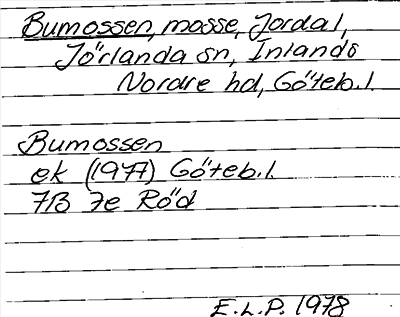 Bumossen, mosse, Jordal,
Jörlanda sn, Inlands
Nordre hd, Göteb.l.
Bumossen
ek (1977) Göteb.l.
7B 7e Röd
E.L.P. 1978